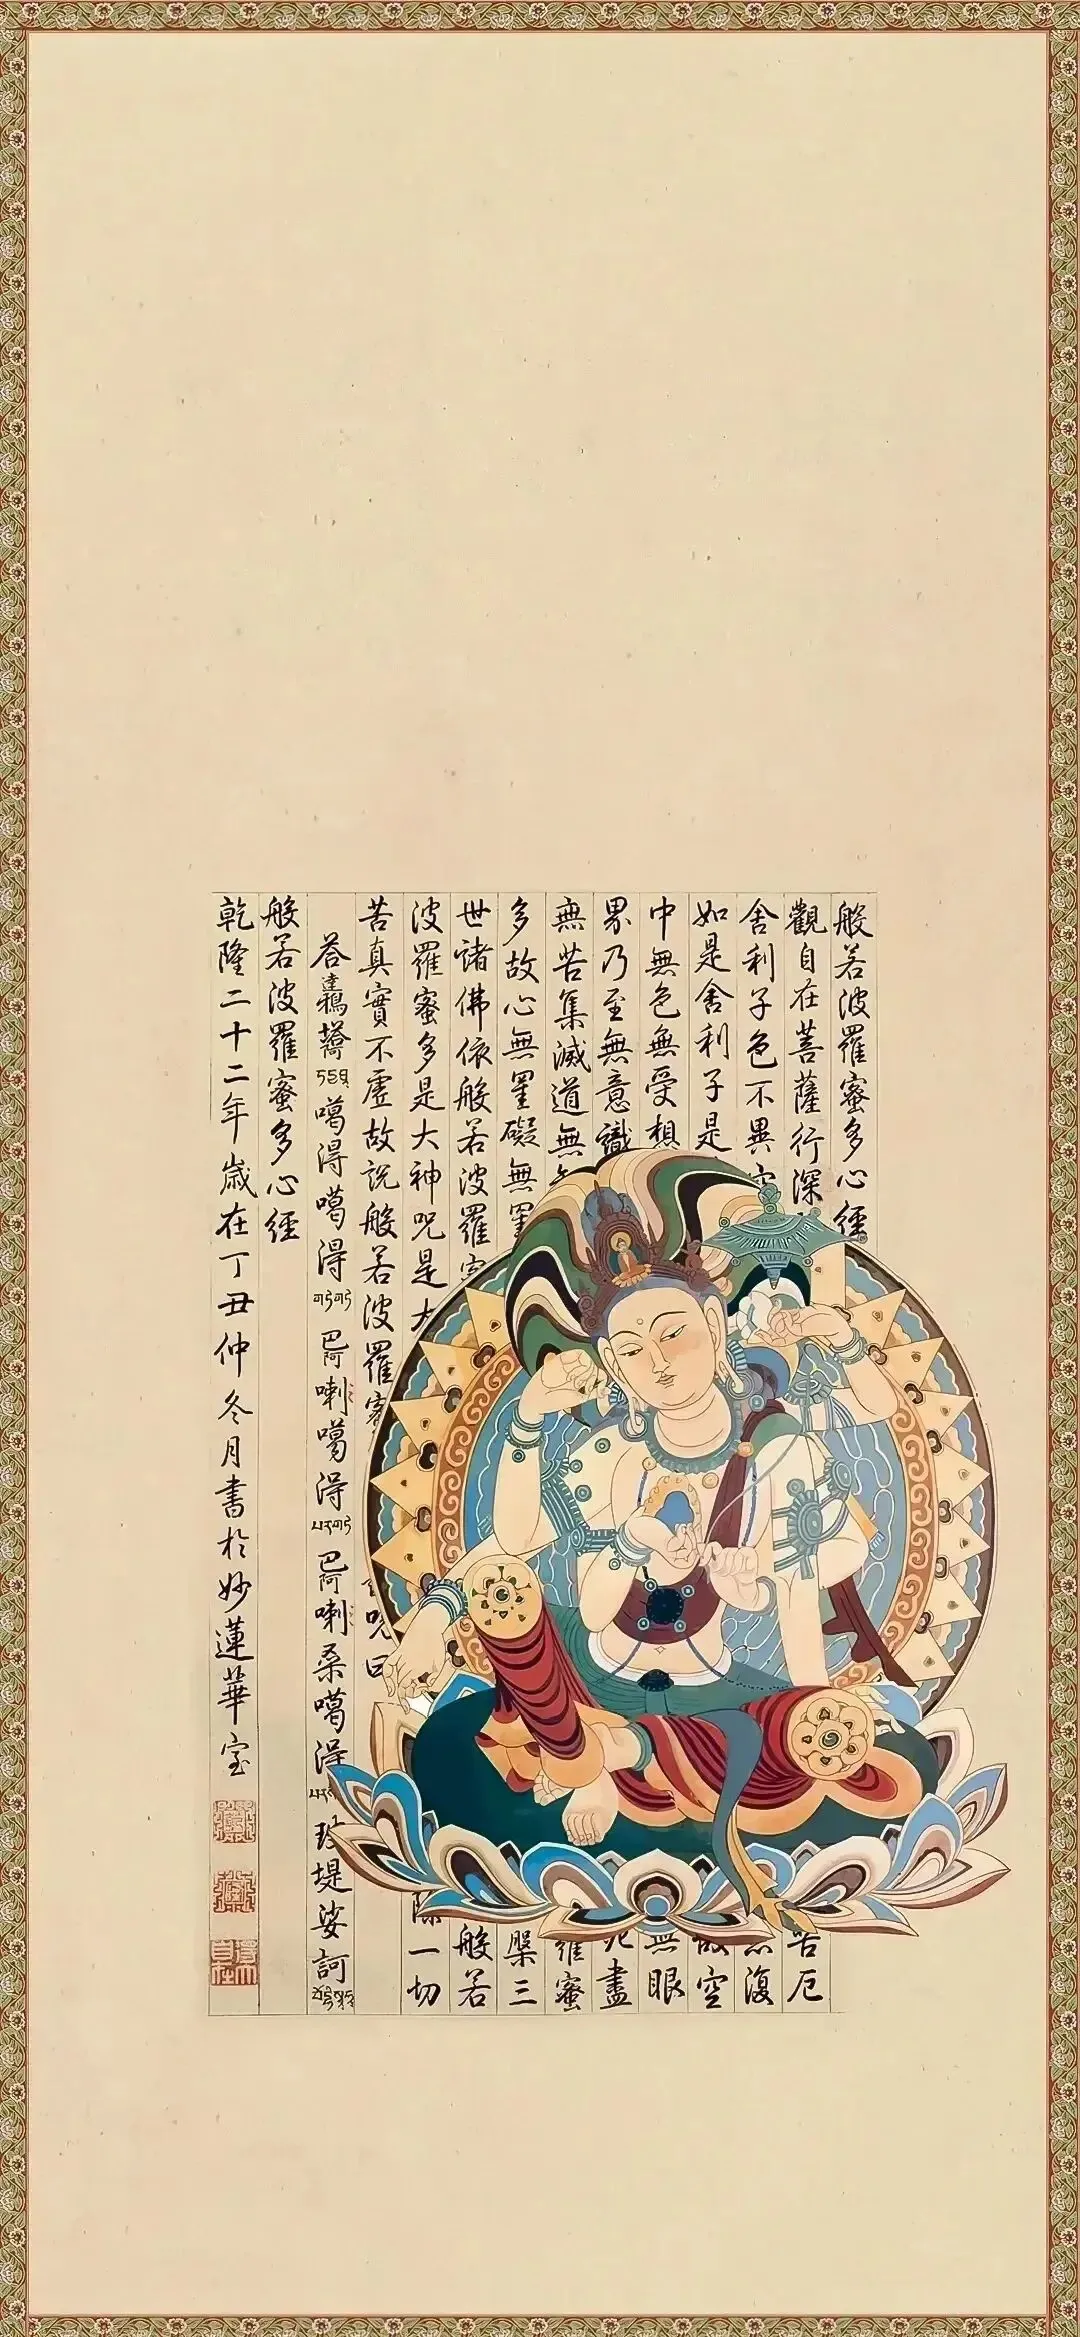 般若波羅蜜多心經
觀自在菩薩行深
苦厄
舍利子色不異
復
如是舍利子是
空
中無色無受想
無眼
界乃至無意識
盡
無苦集滅道無
羅蜜
多故心無罣礙無罣
槃三
世諸佛依般若波羅
般若
波羅蜜多是大神呪是大
一切
苦真實不虛故說般若波羅
呪曰
噶得噶得
巴阿喇噶得
巴阿喇桑噶得
堤娑訶
般若波羅蜜多心經
乾隆二十二年歲在丁丑仲冬月書於妙蓮華室